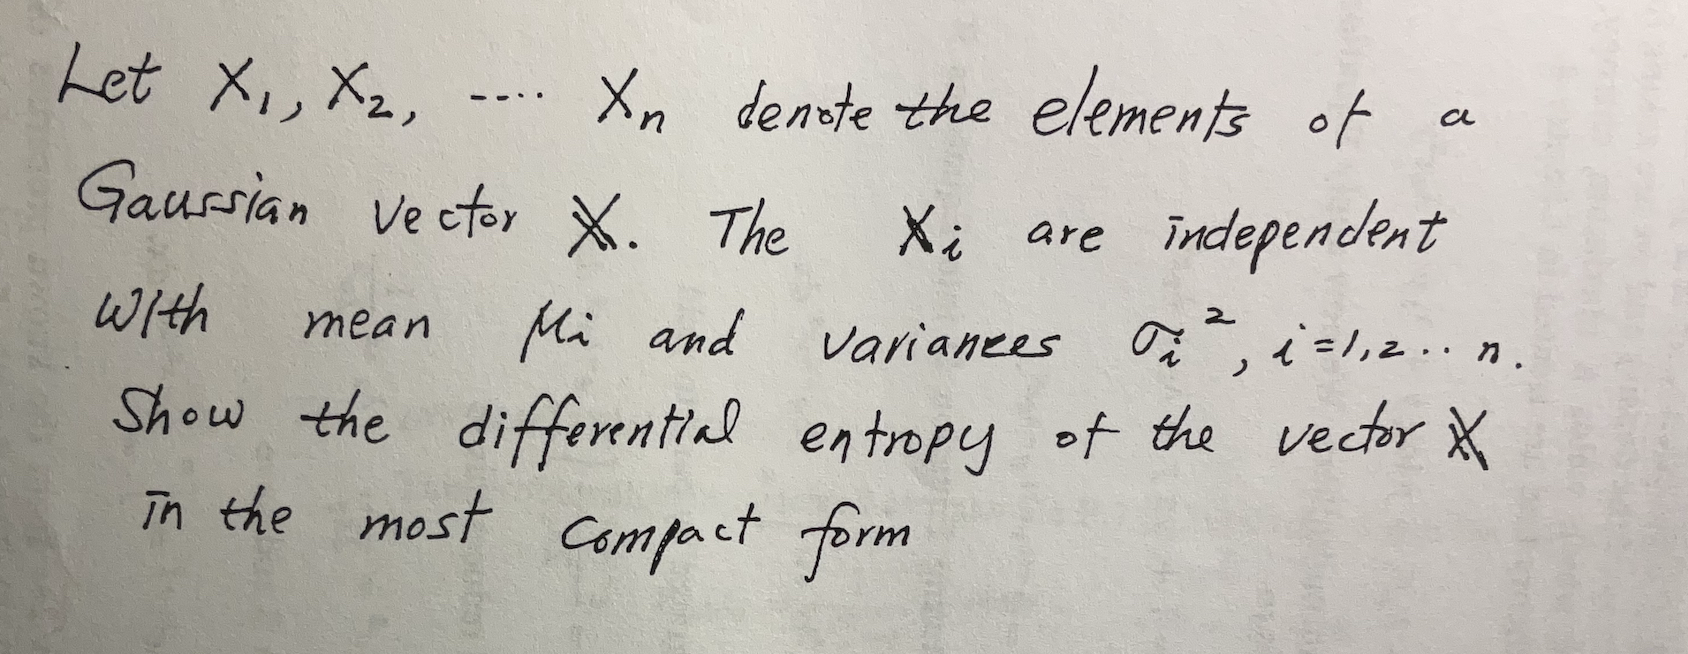 Let X₁, X₂, ---- Xₙ denote the elements of a
Gaussian vector 𝕏. The Xᵢ are independent
With mean μᵢ and variances σᵢ², i=1,2.. n.
Show the differential entropy of the vector 𝕏
in the most compact form